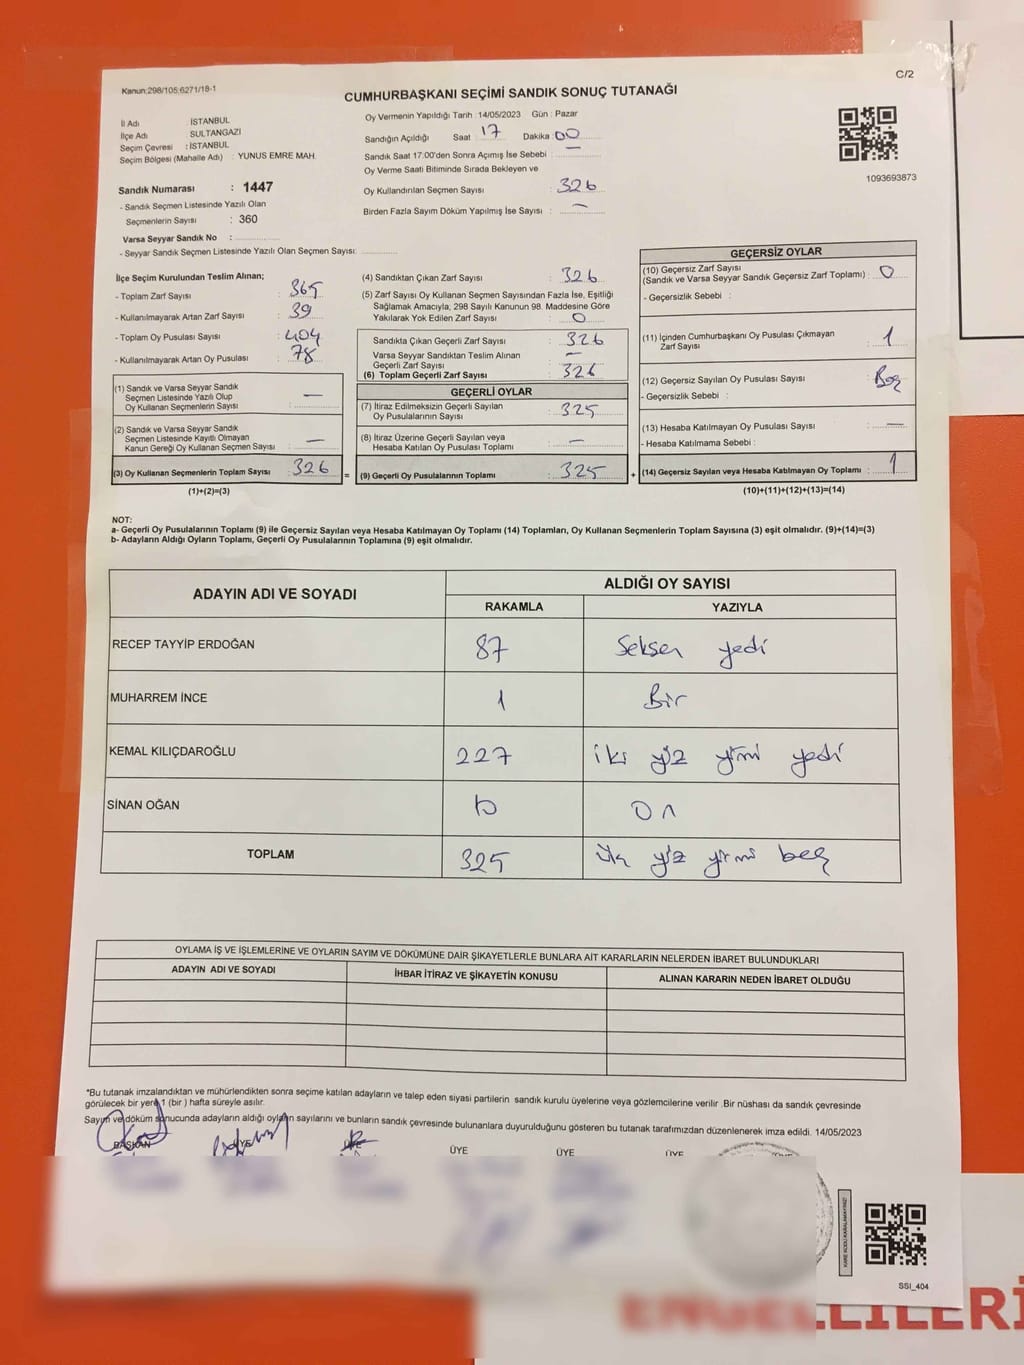 C/2
Kanun:298/105;6271/18-1
CUMHURBAŞKANI SEÇİMİ SANDIK SONUÇ TUTANAĞI
İl Adı İSTANBUL
İlçe Adı SULTANGAZİ
Seçim Çevresi : İSTANBUL
Seçim Bölgesi (Mahalle Adı) : YUNUS EMRE MAH.
Sandık Numarası : 1447
- Sandık Seçmen Listesinde Yazılı Olan
Seçmenlerin Sayısı : 360
Varsa Seyyar Sandık No :
- Seyyar Sandık Seçmen Listesinde Yazılı Olan Seçmen Sayısı:
Oy Vermenin Yapıldığı Tarih : 14/05/2023 Gün : Pazar
Sandığın Açıldığı Saat 17 Dakika : 00
Sandık Saat 17:00'den Sonra Açımış İse Sebebi : —
Oy Verme Saati Bitiminde Sırada Bekleyen ve
Oy Kullandırılan Seçmen Sayısı : 326
Birden Fazla Sayım Döküm Yapılmış İse Sayısı : —
1093693873
İlçe Seçim Kurulundan Teslim Alınan;
- Toplam Zarf Sayısı : 365
- Kullanılmayarak Artan Zarf Sayısı : 39
- Toplam Oy Pusulası Sayısı : 404
- Kullanılmayarak Artan Oy Pusulası : 78
(1) Sandık ve Varsa Seyyar Sandık
Seçmen Listesinde Yazılı Olup
Oy Kullanan Seçmenlerin Sayısı : —
(2) Sandık ve Varsa Seyyar Sandık
Seçmen Listesinde Kayıtlı Olmayan
Kanun Gereği Oy Kullanan Seçmen Sayısı : —
(3) Oy Kullanan Seçmenlerin Toplam Sayısı : 326 =
(1)+(2)=(3)
(4) Sandıktan Çıkan Zarf Sayısı : 326
(5) Zarf Sayısı Oy Kullanan Seçmen Sayısından Fazla İse, Eşitliği
Sağlamak Amacıyla, 298 Sayılı Kanunun 98. Maddesine Göre
Yakılarak Yok Edilen Zarf Sayısı : 0
Sandıkta Çıkan Geçerli Zarf Sayısı : 326
Varsa Seyyar Sandıktan Teslim Alınan
Geçerli Zarf Sayısı : —
(6) Toplam Geçerli Zarf Sayısı : 326
GEÇERLİ OYLAR
(7) İtiraz Edilmeksizin Geçerli Sayılan
Oy Pusulalarının Sayısı : 325
(8) İtiraz Üzerine Geçerli Sayılan veya
Hesaba Katılan Oy Pusulaları Toplamı : —
(9) Geçerli Oy Pusulalarının Toplamı : 325 +
GEÇERSİZ OYLAR
(10) Geçersiz Zarf Sayısı
(Sandık ve Varsa Seyyar Sandık Geçersiz Zarf Toplamı) : 0
- Geçersizlik Sebebi :
(11) İçinden Cumhurbaşkanı Oy Pusulası Çıkmayan
Zarf Sayısı : 1
(12) Geçersiz Sayılan Oy Pusulası Sayısı : Boş
- Geçersizlik Sebebi :
(13) Hesaba Katılmayan Oy Pusulası Sayısı : —
- Hesaba Katılmama Sebebi :
(14) Geçersiz Sayılan veya Hesaba Katılmayan Oy Toplamı : 1
(10)+(11)+(12)+(13)=(14)
NOT:
a- Geçerli Oy Pusulalarının Toplamı (9) ile Geçersiz Sayılan veya Hesaba Katılmayan Oy Toplamı (14) Toplamları, Oy Kullanan Seçmenlerin Toplam Sayısına (3) eşit olmalıdır. (9)+(14)=(3)
b- Adayların Aldığı Oyların Toplamı, Geçerli Oy Pusulalarının Toplamına (9) eşit olmalıdır.
ADAYIN ADI VE SOYADI ALDIĞI OY SAYISI
RAKAMLA YAZIYLA
RECEP TAYYİP ERDOĞAN 87 Seksen yedi
MUHARREM İNCE 1 Bir
KEMAL KILIÇDAROĞLU 227 iki yüz yirmi yedi
SİNAN OĞAN 10 On
TOPLAM 325 üç yüz yirmi beş
OYLAMA İŞ VE İŞLEMLERİNE VE OYLARIN SAYIM VE DÖKÜMÜNE DAİR ŞİKAYETLERLE BUNLARA AİT KARARLARIN NELERDEN İBARET BULUNDUKLARI
ADAYIN ADI VE SOYADI İHBAR İTİRAZ VE ŞİKAYETİN KONUSU ALINAN KARARIN NEDEN İBARET OLDUĞU
*Bu tutanak imzalandıktan ve mühürlendikten sonra seçime katılan adayların ve talep eden siyasi partilerin sandık kurulu üyelerine veya gözlemcilerine verilir .Bir nüshası da sandık çevresinde
görülecek bir yere 1 (bir ) hafta süreyle asılır.
Sayım ve döküm sonucunda adayların aldığı oyların sayılarını ve bunların sandık çevresinde bulunanlara duyurulduğunu gösteren bu tutanak tarafımızdan düzenlenerek imza edildi. 14/05/2023
BAŞKAN ÜYE ÜYE ÜYE ÜYE ÜYE
SSI_404
ENGELLİLERİ